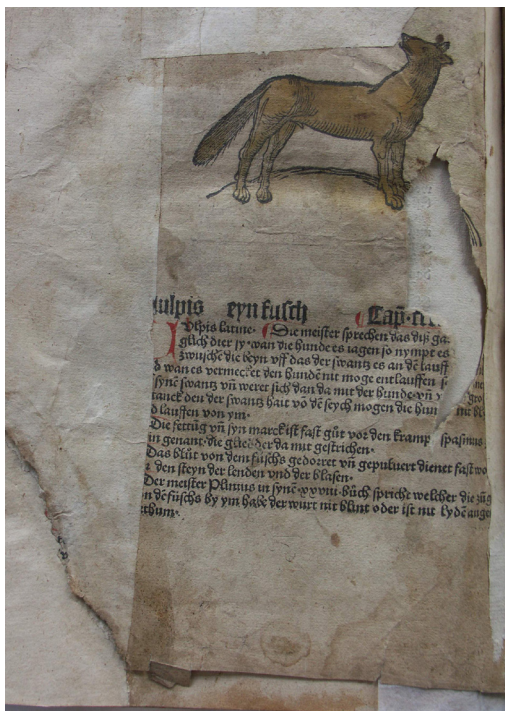 ulpis eyn fusch Cap̄·
Ulpis latine· Die meister sprechen das diß
glich dier sy· wan die hunde es iagen so nympt es
zwuschē die beyn vff das der swantz es an dē lauff
wan es vermercket den hundē nit moge entlauffen
synē swantz vn̄ weret sich dan da mit der hunde· vn̄
stanck den der swantz hait vō dē seych mogen die hun
lauffen von ym·
Die fettūg vn̄ syn marck ist fast gůt vor den kramp spasmus
in genant· die glieder da mit gestrichen·
Das blůt von dem fuschs gedorret vn̄ gepuluert dienet fast wo
den steyn der lenden vnd der blasen·
Der meister Plinius in synē·xxviii·bůch spricht welcher die zūg
dē fuschs by ym habe der wurt nit blint oder ist nit lydē auge
thum·